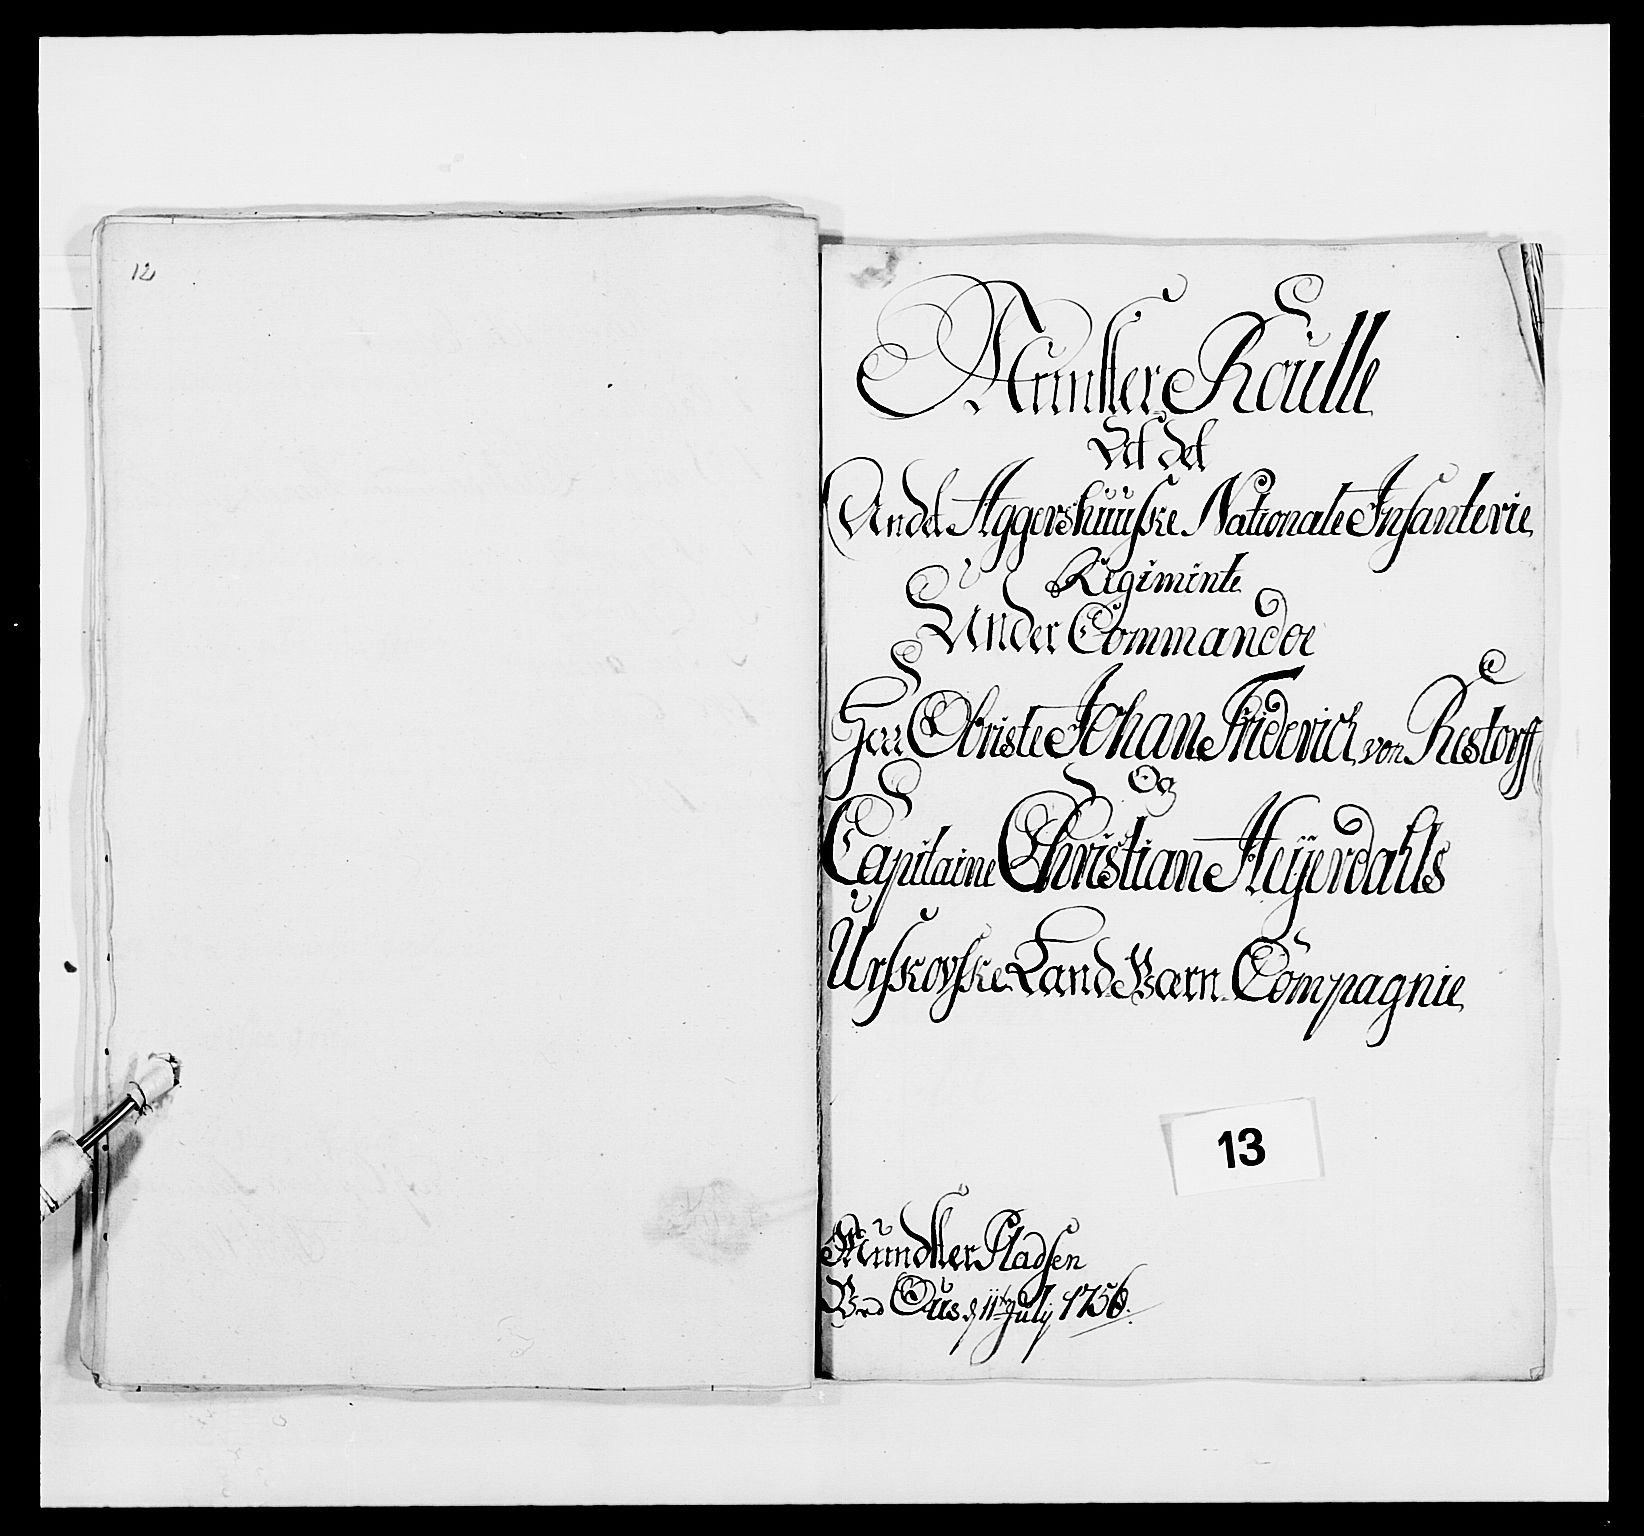 12
Munster Roulle
Af det
Andet Aggershuuske Nationale Infanterie
Regimente
Under Commandoe
Herr Obriste Johan Friderich von Restorff
Og
Capitaine Christian Heÿerdahls
Urskovske Land Værn Compagnie
13
Mundster Pladsen
Ved Ous d 11te Julÿ 1756.